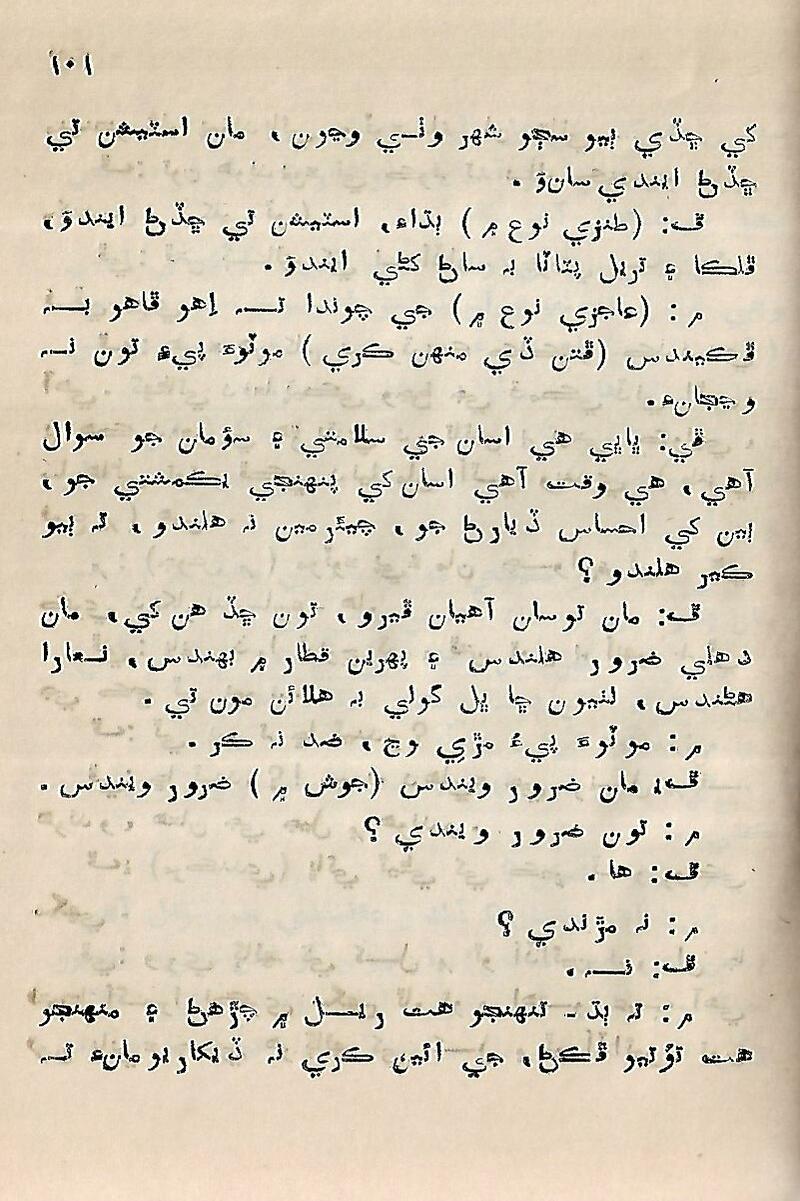 ١٠١
کي ڇڏي ٻيو سڄو شهر وٺي وڃون، مان اسٽيشن تي
ڇڏڻ ايندي سانوَ .
ف: (طنزي نوع ۾) ٻڌاءِ، اسٽيشن تي ڇڏڻ ايندوَ،
ڦلڪا ۽ تريل پٽاٽا بہ ساڻ کڻي ايندوَ .
م: (عاجزي نوع ۾) جي چوندا تہ اِهو ڦاهو بہ
ڦڪيندس (ڦٽن ڏي منهن ڪري) موٽوءَ پيءُ تون نہ
وڃجانءِ.
في: ڀاڀي هي اسان جي سلامتي ۽ سؤمان جو سوال
آهي، هي وقت آهي اسان کي پنهنجي يڪمشتي جو،
ٻين کي احساس ڏيارڻ جو، چيئرمين نہ هلندو، تہ ٻيو
ڪير هلندو ؟
ف: مان توسان آهيان ڦيرو، تون ڇڏ هن کي، مان
دهلي ضرور هلندس ۽ پهرين قطار ۾ بهندس، نعارا
هڻندس، لٺيون ڇا ڀل گولي بہ هلائن مون تي .
م: موٽوءَ پيءُ مڙي وڃ، ضد نہ ڪر .
ف: مان ضرور ويندس (جوش ۾) ضرور ويندس .
م: تون ضرور ويندي ؟
ف: ها .
م: نہ مڙندي ؟
ف: نہ .
م: تہ ٻڌ - تنهنجو هت ريل ۾ چڙهڻ ۽ منهنجو
هت تؤٽيو ڦڪڻ، جي ائين ڪري نہ ڏيکاريومانءِ تہ